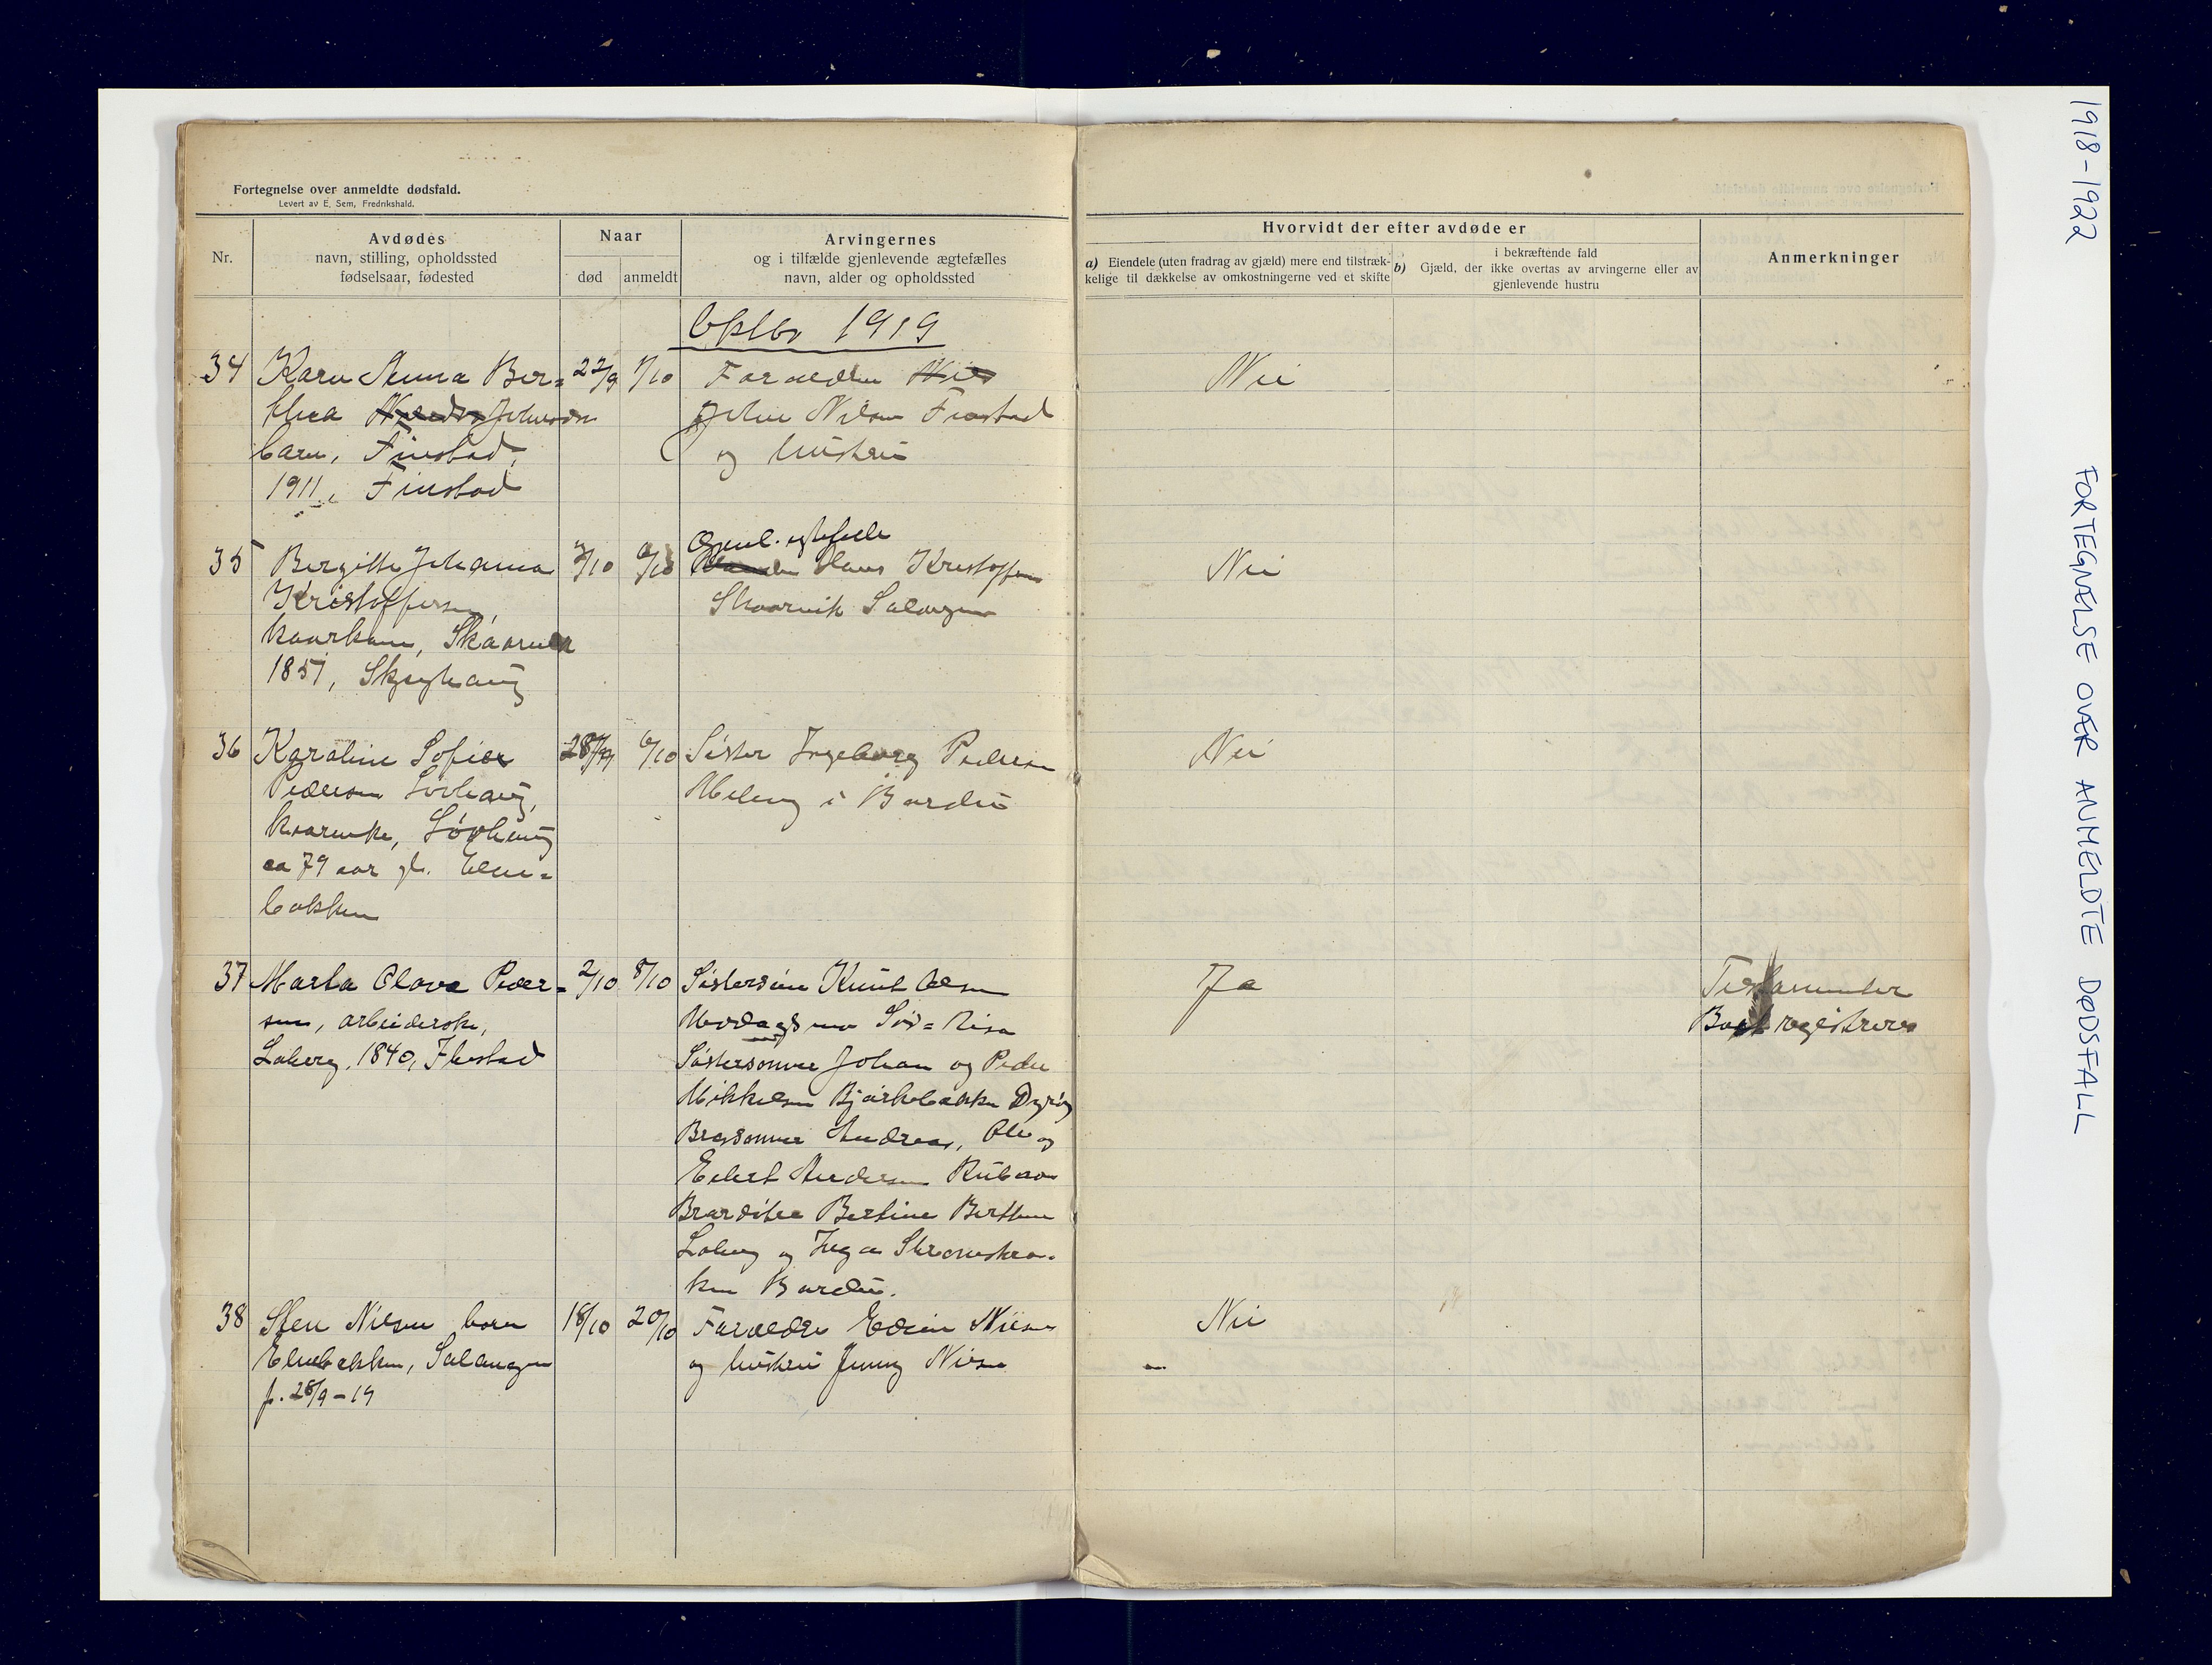 Fortegnelse over anmeldte dødsfald.
Levert av E. Sem, Fredrikshald.
Nr.
Avdødes
navn, stilling, opholdssted
fødselsaar, fødested
Naar
død
anmeldt
Arvingernes
og i tilfælde gjenlevende ægtefælles
navn, alder og opholdssted
Hvorvidt der efter avdøde er
a) Eiendele (uten fradrag av gjæld) mere end tilstræk-
kelige til dækkelse av omkostningerne ved et skifte
b)
i bekræftende fald
Gjæld, der ikke overtas av arvingerne eller av
gjenlevende hustru
Anmerkninger
Oktbr 1919
34
Karen Anna Ber=
thea Johnsen
barn, Finstad,
1911, Finstad
22/9
1/10
Forældre
John Nilsen Finstad
og hustru
Nei
35
Bergitte Johanna
Kristoffersen,
kaarkone, Skaarvik
1851, Skjeghaug
/10
6/10
Gjenl. egtefelle
Hans Kristoffersen
Skaarvik Salangen
Nei
36
Karoline Sofie
Pedersen Løvhaug,
kaarenke, Løvhaug
ca 79 aar gl. Elve=
bakken
28/9
6/10
Søster Ingeborg Pedersen
i Bardu
Nei
37
Marta Olava Peder=
sen, arbeiderske,
Laberg, 1840, Ibestad
2/10
8/10
Søstersøn Knut Olsen
Sør=Reisa
Søstersønner Johan og Peder
Mikkelsen Bjørkebakken Dyrøy
Brorsønner Andreas, Ole og
Edert Andersen
Brordøtre Bertine Berthen
Laberg og Inga Strømskro-
ken Bardu.
Ja
Testamenter
Boet registreres
38
Sten Nilsen barn
Elvebakken, Salangen
f. 28/9-19
18/10
20/10
Forældre Edvin Nilsen
og hustru Jenny Nilsen
Nei
1918-1922
FORTEGNELSE OVER ANMELDTE DØDSFALL